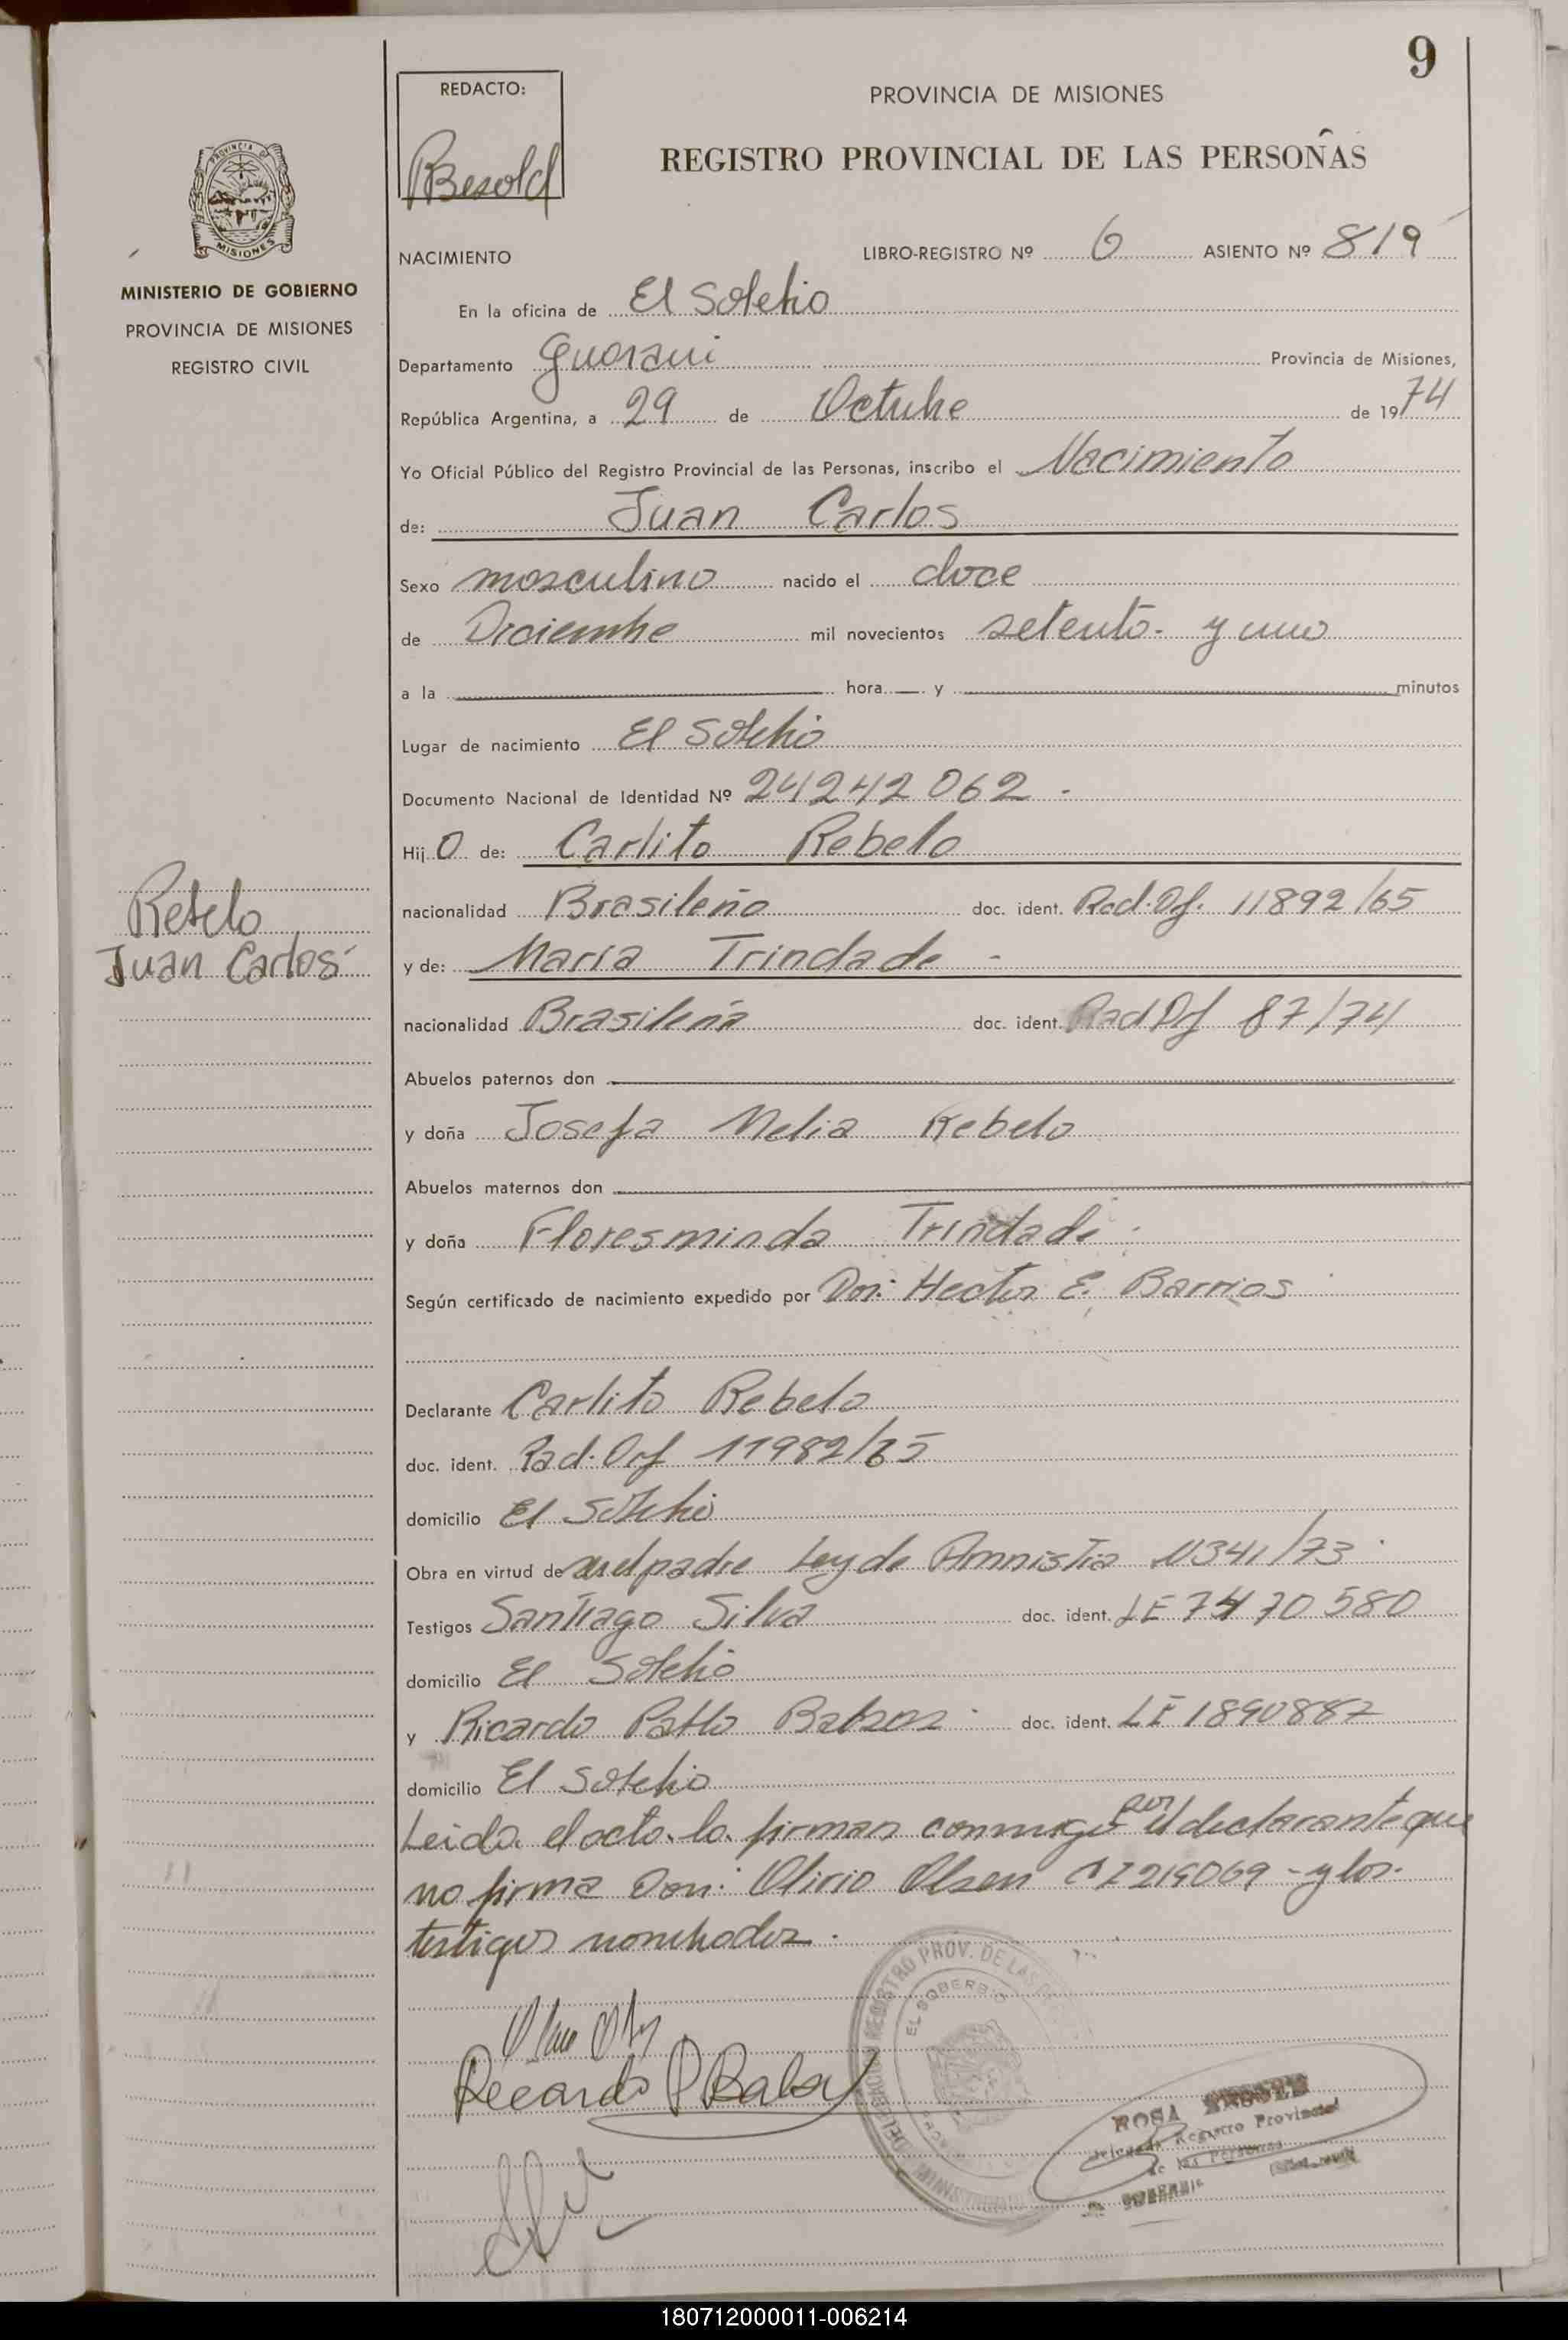 9
REDACTO:
Besold
PROVINCIA DE MISIONES
REGISTRO PROVINCIAL DE LAS PERSONAS
PROVINCIA
MISIONES
MINISTERIO DE GOBIERNO
PROVINCIA DE MISIONES
REGISTRO CIVIL
NACIMIENTO LIBRO-REGISTRO Nº 6 ASIENTO Nº 819
En la oficina de El Soberbio
Departamento Guarani Provincia de Misiones,
República Argentina, a 29 de Octubre de 1974
Yo Oficial Público del Registro Provincial de las Personas, inscribo el Nacimiento
de: Juan Carlos
Sexo masculino nacido el doce
de Diciembre mil novecientos setenta y uno
a la hora y minutos
Lugar de nacimiento El Soberbio
Documento Nacional de Identidad Nº 24242062 -
Hijo de: Carlito Rebelo
nacionalidad Brasileño doc. ident. Rad. Of. 11892/65
Rebelo
Juan Carlos
y de: Maria Trindade -
nacionalidad Brasileña doc. ident. Rad Of 87/74
Abuelos paternos don
y doña Josefa Melia Rebelo
Abuelos maternos don
y doña Floresminda Trindade
Según certificado de nacimiento expedido por Don: Hector E. Barrios
Declarante Carlito Rebelo
doc. ident. Rad. Of 11982/65
domicilio El Soberbio
Obra en virtud de ser el padre Ley de Amnistia 11341/73
Testigos Santiago Silva doc. ident. LE 7470580
domicilio El Soberbio
y Ricardo Pablo doc. ident. LE 1890887
domicilio El Soberbio
Leida el acta la firman conmigo por el declarante que
no firma Don: Olirio Olsen CI 219069 - y los
testigos nombrados.
Ricardo P
REGISTRO PROV. DE LAS
EL SOBERBIO
ROSA
Delegada Registro Provincial
de las Personas
EL SOBERBIO
180712000011-006214